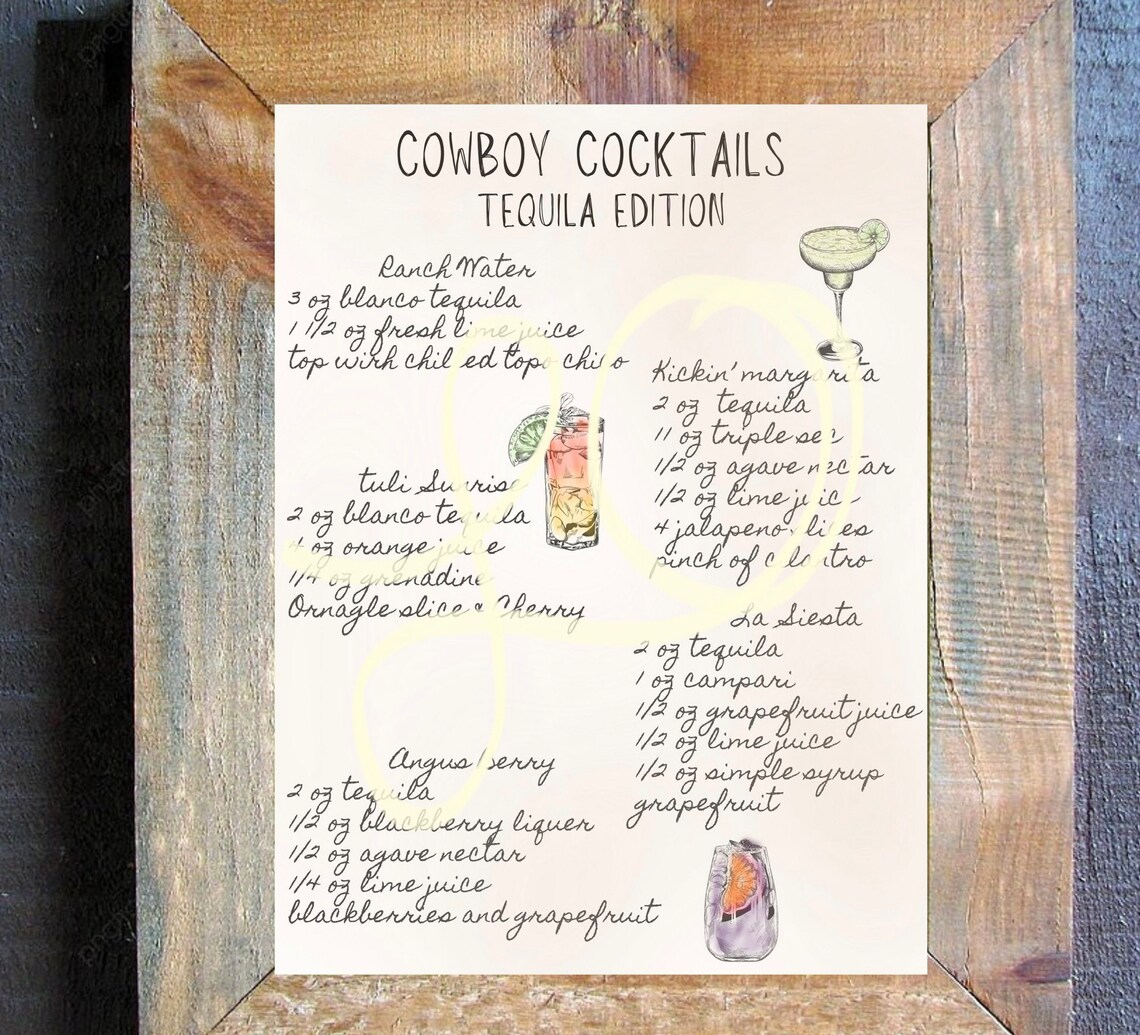 COWBOY COCKTAILS
TEQUILA EDITION
Ranch Water
3 oz blanco tequila
1 1/2 oz fresh lime juice
top wirh chilled topo chico
tuli Sunrise
2 oz blanco tequila
4 oz orange juice
1/4 oz grenadine
Ornagle slice & Cherry
Angus berry
2 oz tequila
1/2 oz blackberry liquer
1/2 oz agave nectar
1/4 oz lime juice
blackberries and grapefruit
Kickin' margarita
2 oz tequila
11 oz triple sec
1/2 oz agave nectar
1/2 oz lime juice
4 jalapeno slices
pinch of cilantro
La Siesta
2 oz tequila
1 oz campari
1/2 oz grapefruit juice
1/2 oz lime juice
1/2 oz simple syrup
grapefruit